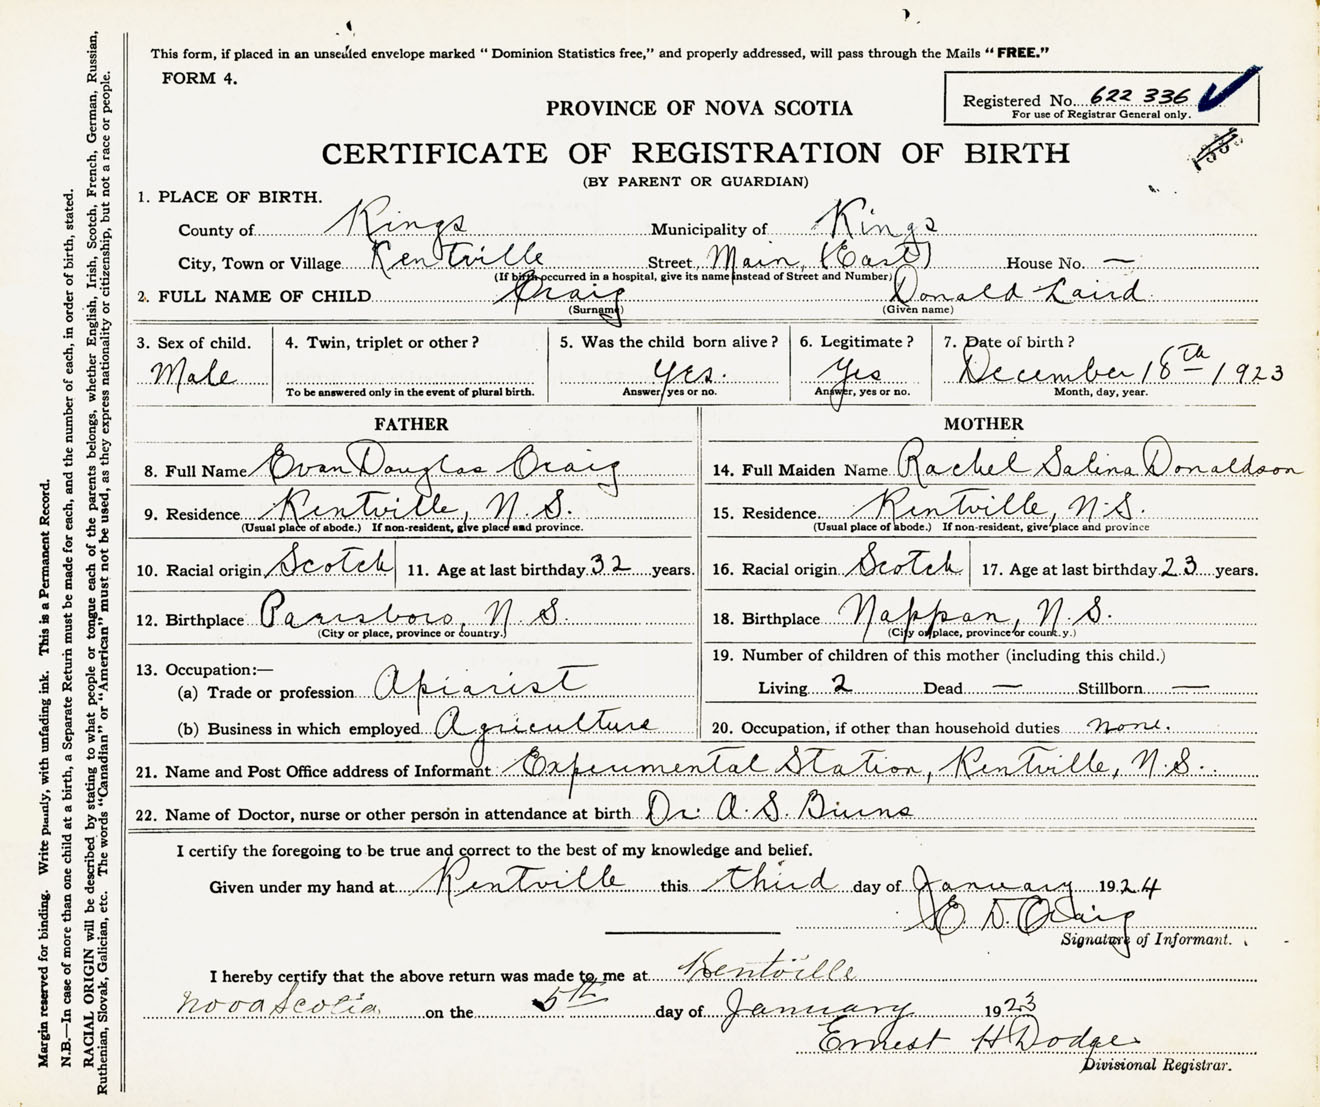 This form, if placed in an unsealed envelope marked "Dominion Statistics free," and properly addressed, will pass through the Mails "FREE."
FORM 4.
Registered No. 622 336
For use of Registrar General only.
PROVINCE OF NOVA SCOTIA
CERTIFICATE OF REGISTRATION OF BIRTH
(BY PARENT OR GUARDIAN)
1. PLACE OF BIRTH.
County of Kings Municipality of Kings
City, Town or Village Kentville Street Main, (East) House No. —
(If birth occurred in a hospital, give its name instead of Street and Number)
2. FULL NAME OF CHILD Craig Donald Laird
(Surname) (Given name)
3. Sex of child. 4. Twin, triplet or other? 5. Was the child born alive? 6. Legitimate? 7. Date of birth?
Male Yes. Yes December 18th 1923
To be answered only in the event of plural birth. Answer, yes or no. Answer, yes or no. Month, day, year.
FATHER MOTHER
8. Full Name Evan Douglas Craig 14. Full Maiden Name Rachel Salina Donaldson
9. Residence Kentville, N.S. 15. Residence Kentville, N.S.
(Usual place of abode.) If non-resident, give place and province. (Usual place of abode.) If non-resident, give place and province
10. Racial origin Scotch 11. Age at last birthday 32 years. 16. Racial origin Scotch 17. Age at last birthday 23 years.
12. Birthplace Parrsboro, N.S. 18. Birthplace Nappan, N.S.
(City or place, province or country.) (City or place, province or country.)
13. Occupation:— 19. Number of children of this mother (including this child.)
(a) Trade or profession Apiarist Living 2 Dead — Stillborn —
(b) Business in which employed Agriculture 20. Occupation, if other than household duties none.
21. Name and Post Office address of Informant Experimental Station, Kentville, N.S.
22. Name of Doctor, nurse or other person in attendance at birth Dr. A. S. Burns
I certify the foregoing to be true and correct to the best of my knowledge and belief.
Given under my hand at Kentville this third day of January 1924
E. D. Craig
Signature of Informant.
I hereby certify that the above return was made to me at Kentville
Nova Scotia on the 5th day of January 1923
Ernest H Dodge
Divisional Registrar.
Margin reserved for binding. Write plainly, with unfading ink. This is a Permanent Record.
N.B.—In case of more than one child at a birth, a Separate Return must be made for each, and the number of each, in order of birth, stated.
RACIAL ORIGIN will be described by stating to what people or tongue each of the parents belongs, whether English, Irish, Scotch, French, German, Russian,
Ruthenian, Slovak, Galician, etc. The words "Canadian" or "American" must not be used, as they express nationality or citizenship, but not a race or people.